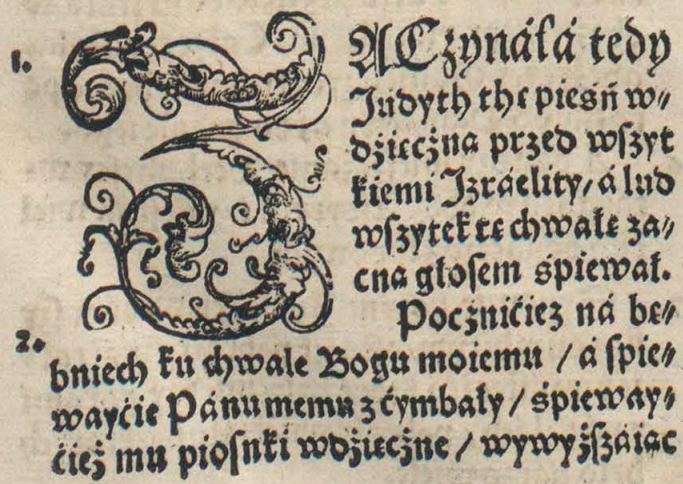 1. ZACzynáłá tedy
Judyth thę pieśń w⸗
dźięcżną przed wszyt
kiemi Izráelity/ á lud
wszytek tę chwałę za⸗
cną głosem śpiewał.
Pocżniciez ná bę⸗
2. bniech ku chwale Bogu moiemu / á śpie⸗
wayćie Pánu memu z cymbały / śpieway⸗
ćież mu piosnki wdźięcżne / wywyższáiąc